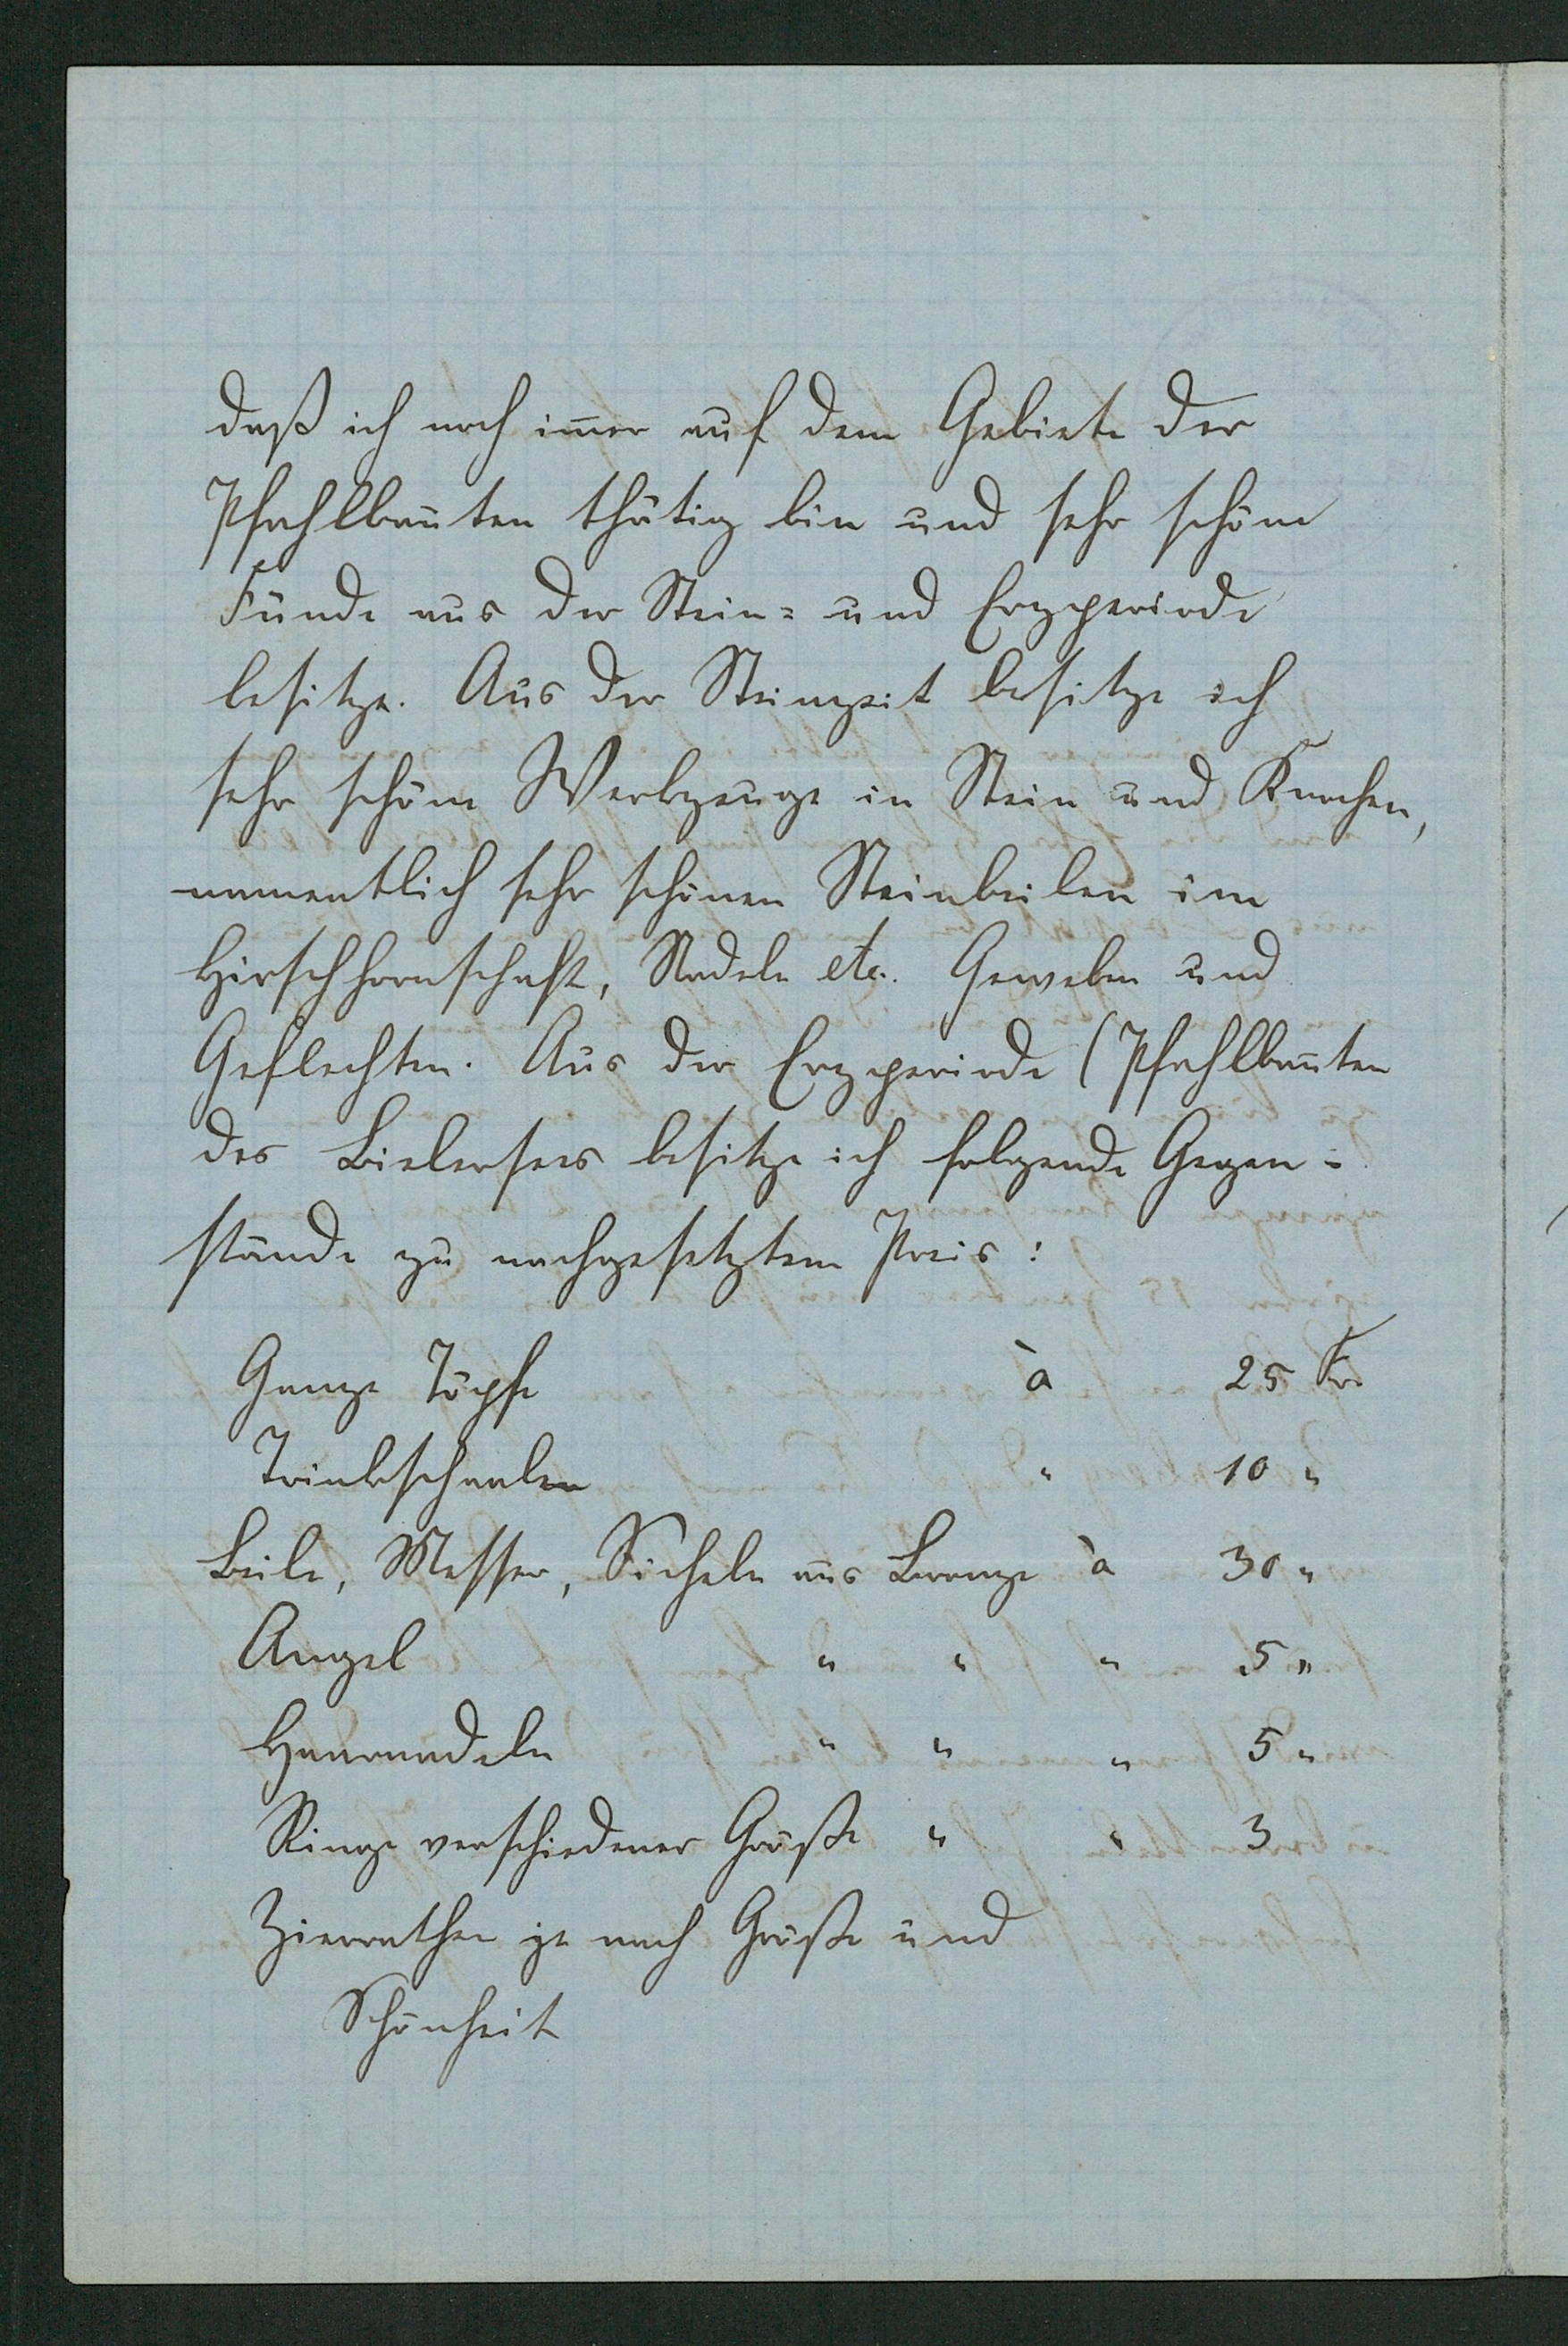 daß ich noch im̅er auf dem Gebiete der
Pfahlbauten thätig bin und sehr schöne
Funde aus der Stein= und Erzperiode
besitze. Aus der Steinzeit besitze ich
sehr schöne Werkzeuge in Stein und Knochen,
namentlich sehr schönen Steinbeilen im
Hirschhornschaft, Nadeln etc. Geweben und
Geflechten. Aus der Erzperiode (Pfahlbauten
des Bielersees besitze ich folgende Gegen=
stände zu nachgesetztem Preis:
Ganze Töpfe à 25 Fr.
Trinkschaalen " 10 "
Beile, Messer, Sicheln aus Bronze à 30 "
Angel " " " 5 "
Haarnadeln " " " 5 "
Ringe verschiedener Größe " " 3
Zierrathen je nach Größe und
Schönheit